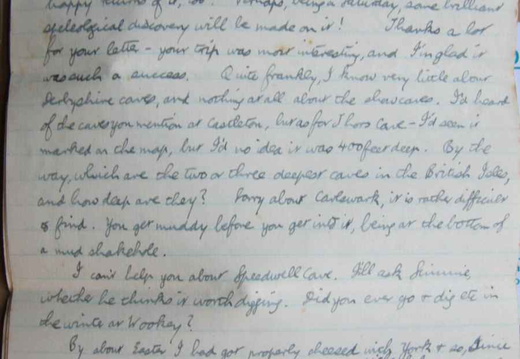 happy returns of it, too. Perhaps, being a Saturday, some brilliant
speleological discovery will be made on it! Thanks a lot
for your letter - your trip was most interesting, and I'm glad it
was such a success. Quite frankly, I know very little about
Derbyshire caves, and nothing at all about the showcaves. I'd heard
of the caves you mention at Castleton, but as for Thors Cave - I'd seen it
marked on the map, but I'd no idea it was 400 feet deep. By the
way, which are the two or three deepest caves in the British Isles,
and how deep are they? Sorry about Carlswark, it is rather difficult
to find. You get muddy before you get into it, being at the bottom of
a mud shakehole.
I can't help you about Speedwell Cave. I'll ask
whether he thinks it worth digging. Did you ever go & dig etc in
the winter at Wookey?
By about Easter I had got properly cheesed with York & so, since